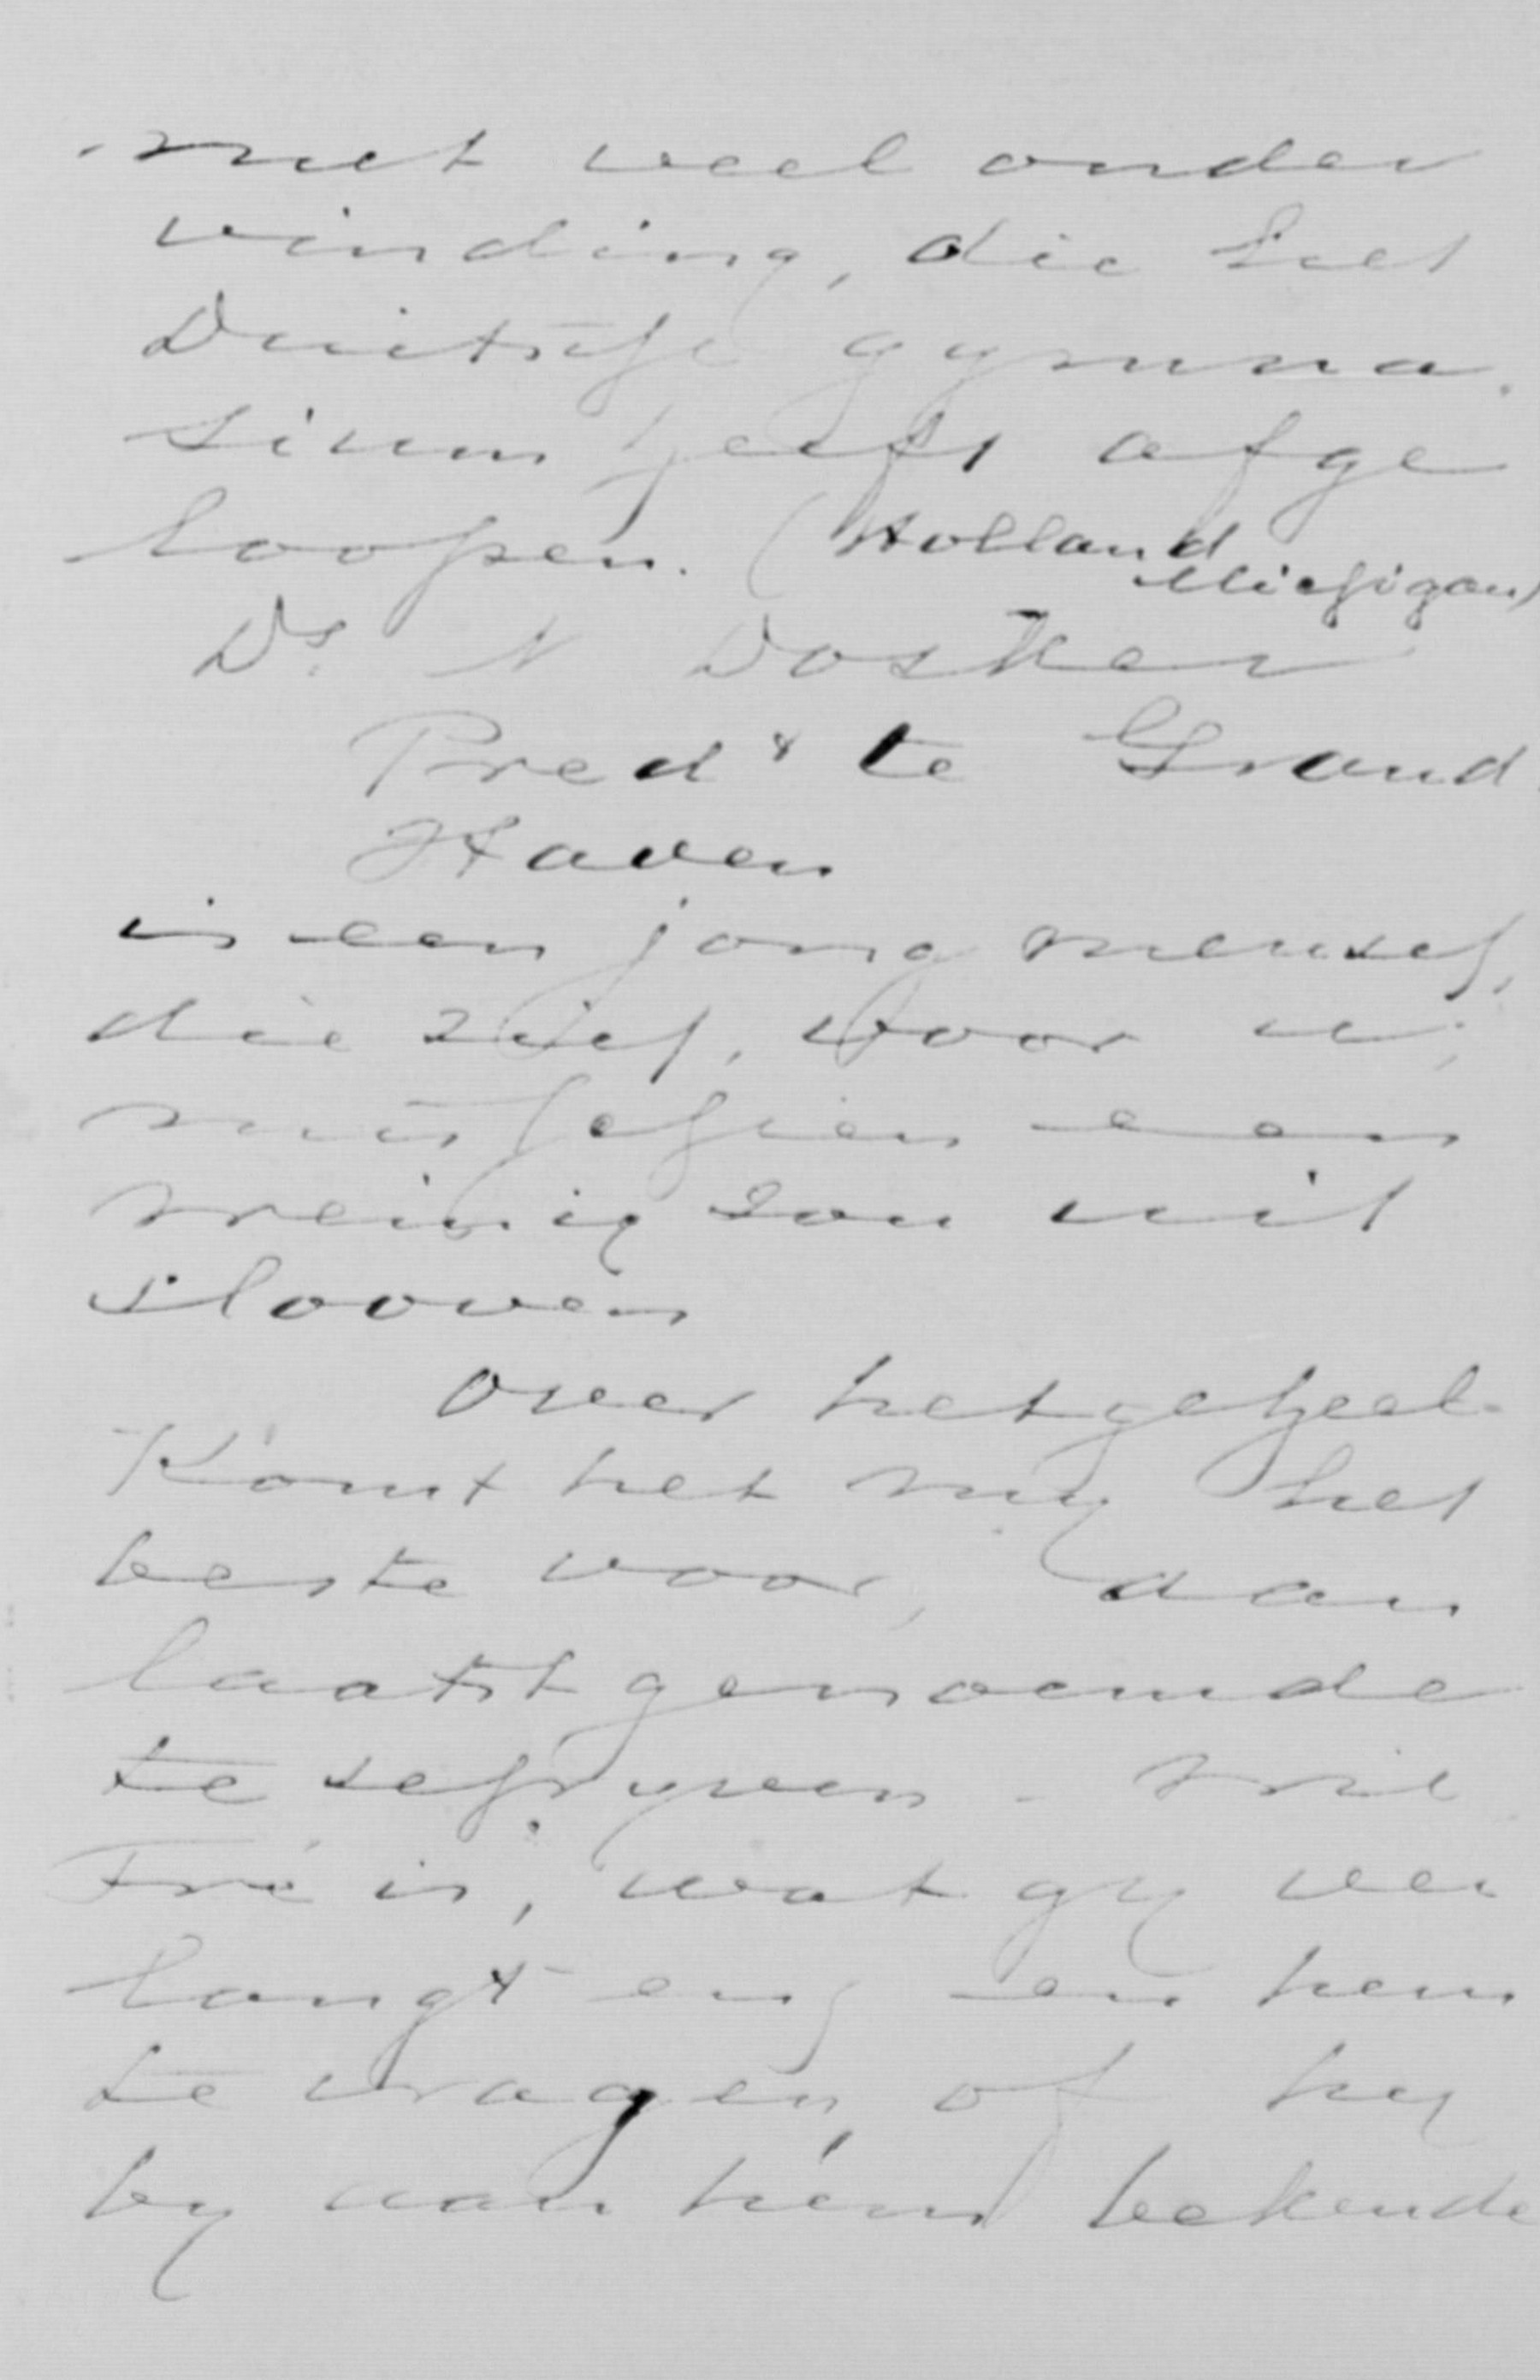 met veel onder
vinding, die het
Duitsche gymna
sium heeft afge
loopen. (Holland
Michigan)
Ds. N Dosker
Predt te Grand
Haven
is een jong mensch,
die zich, voor u,
misschien een
weinig zou uit
slooven
Over het geheel
Komt het my het
beste voor, aan
laatst genoemde
te schryven -
is, wat gy ver
langt en hem
te vragen, of hy
by aan hem bekende